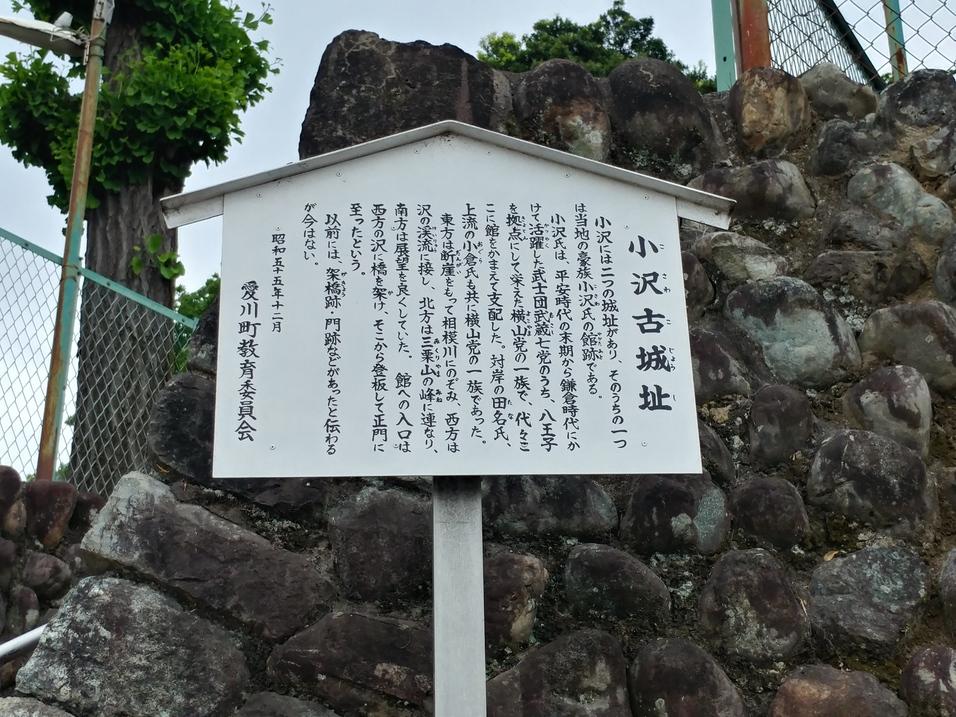 小沢古城址
小沢には二つの城址があり、そのうちの一つ
は当地の豪族小沢氏の館跡である。
小沢氏は、平安時代の末期から鎌倉時代にか
けて活躍した武士団武蔵七党のうち、八王子
を拠点にして栄えた横山党の一族で、代々こ
こに館をかまえて支配した。対岸の田名氏、
上流の小倉氏も共に横山党の一族であった。
東方は断崖をもって相模川にのぞみ、西方は
沢の渓流に接し、北方は三栗山の峰に連なり、
南方は展望を良くしていた。館への入口は
西方の沢に橋を架け、そこから登板して正門に
至ったという。
以前には、架橋跡・門跡などがあったと伝わる
が今はない。
昭和五十五年十二月
愛川町教育委員会